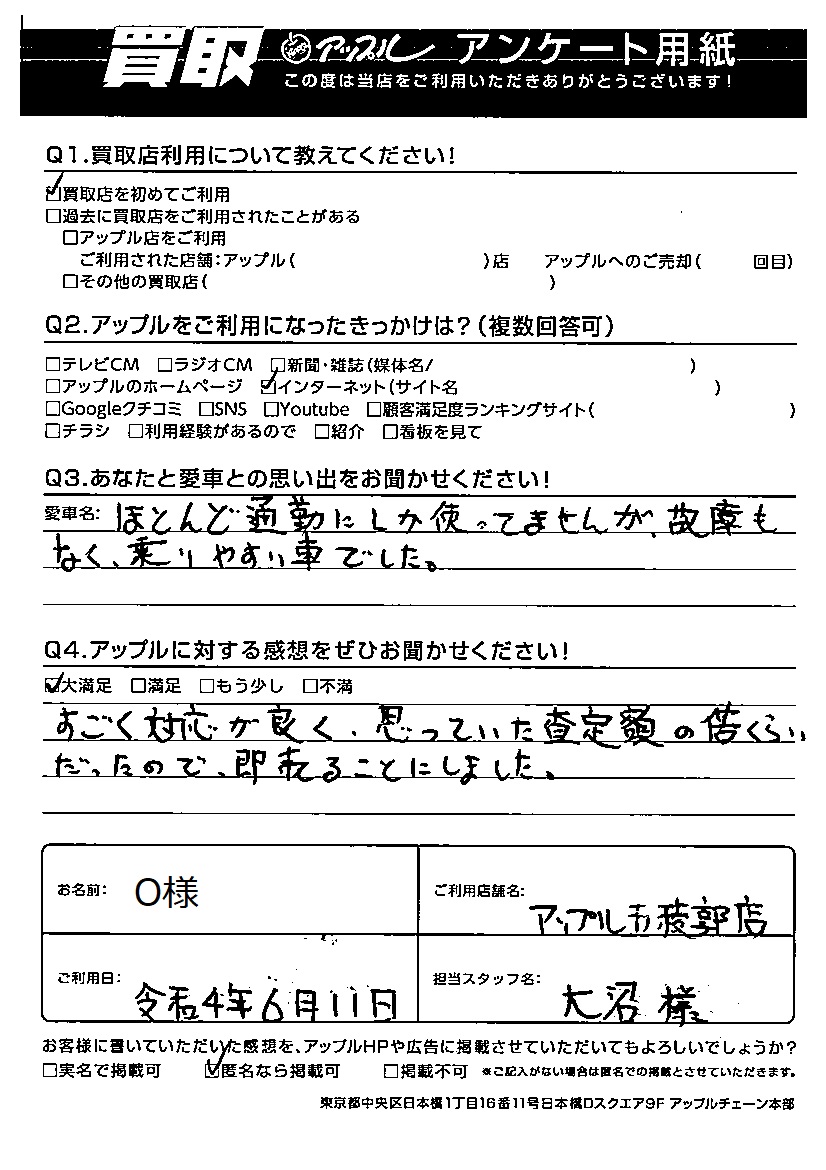 買取 アップル アンケート用紙
この度は当店をご利用いただきありがとうございます！
Q1.買取店利用について教えてください！
☑買取店を初めてご利用
□過去に買取店をご利用されたことがある
□アップル店をご利用
ご利用された店舗：アップル（ ）店 アップルへのご売却（ 回目）
□その他の買取店（ ）
Q2.アップルをご利用になったきっかけは？（複数回答可）
□テレビCM □ラジオCM □新聞・雑誌（媒体名/ ）
□アップルのホームページ ☑インターネット（サイト名 ）
□Googleクチコミ □SNS □Youtube □顧客満足度ランキングサイト（ ）
□チラシ □利用経験があるので □紹介 □看板を見て
Q3.あなたと愛車との思い出をお聞かせください！
愛車名： ほとんど通勤にしか使ってませんが、故障も
なく、乗りやすい車でした。
Q4.アップルに対する感想をぜひお聞かせください！
☑大満足 □満足 □もう少し □不満
すごく対応が良く、思っていた査定額の倍くらい
だったので、即売ることにしました。
お名前： O様
ご利用店舗名：
アップル五稜郭店
ご利用日： 令和4年6月11日
担当スタッフ名： 大沼 様
お客様に書いていただいた感想を、アップルHPや広告に掲載させていただいてもよろしいでしょうか？
□実名で掲載可 ☑匿名なら掲載可 □掲載不可 ※ご記入がない場合は匿名での掲載とさせていただきます。
東京都中央区日本橋1丁目16番11号日本橋Dスクエア9F アップルチェーン本部